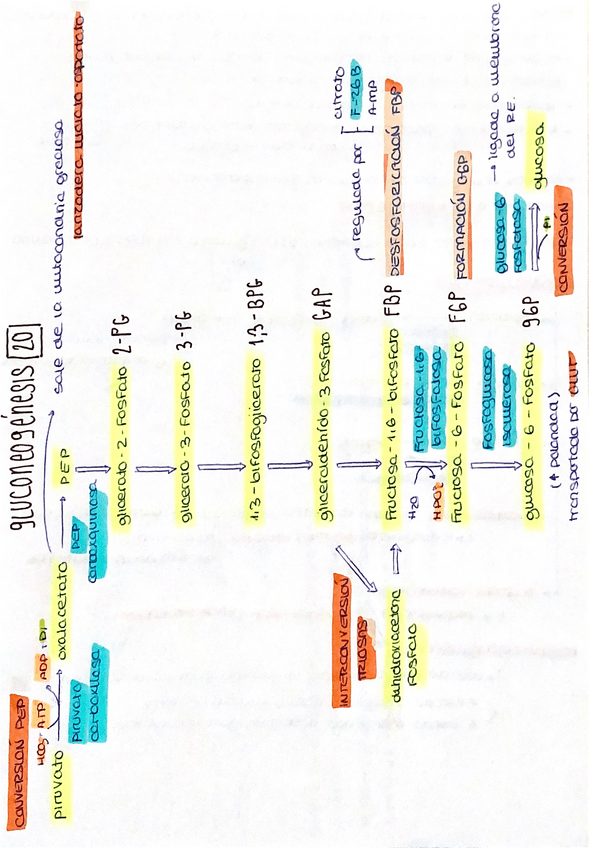 gluconeogénesis 20
CONVERSIÓN PEP
HCO3- ATP
ADP + Pi
piruvato
piruvato
carboxilasa
oxalacetato
PEP
carboxiquinasa
PEP
sale de la mitocondria gracias a
lanzadera malato aspartato
glicerato - 2 - fosfato 2-PG
glicerato - 3 - fosfato 3-PG
1,3 - bifosfoglicerato 1,3-BPG
gliceraldehido - 3 fosfato GAP
INTERCONVERSIÓN
TRIOSAS
dihidroxiacetona
fosfato
Fructosa - 1,6 - bifosfato FBP
regulada por
citrato
F-26B
AMP
DESFOSFORILACIÓN FBP
H2O
HPO4
fructosa-1,6-
bifosfatasa
fructosa - 6 - fosfato F6P
FORMACIÓN G6P
fosfoglucosa
isomerasa
glucosa - 6 - fosfato g6P
glucosa-6
fosfatasa
→ ligada a membrana
del RE.
Pi
glucosa
CONVERSIÓN
transportada por